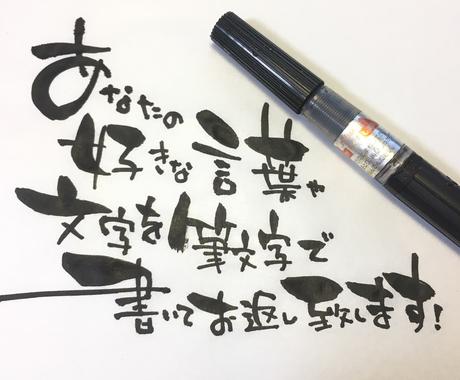 あなたの
好きな言葉や
文字を筆文字で
書いてお返し致します!